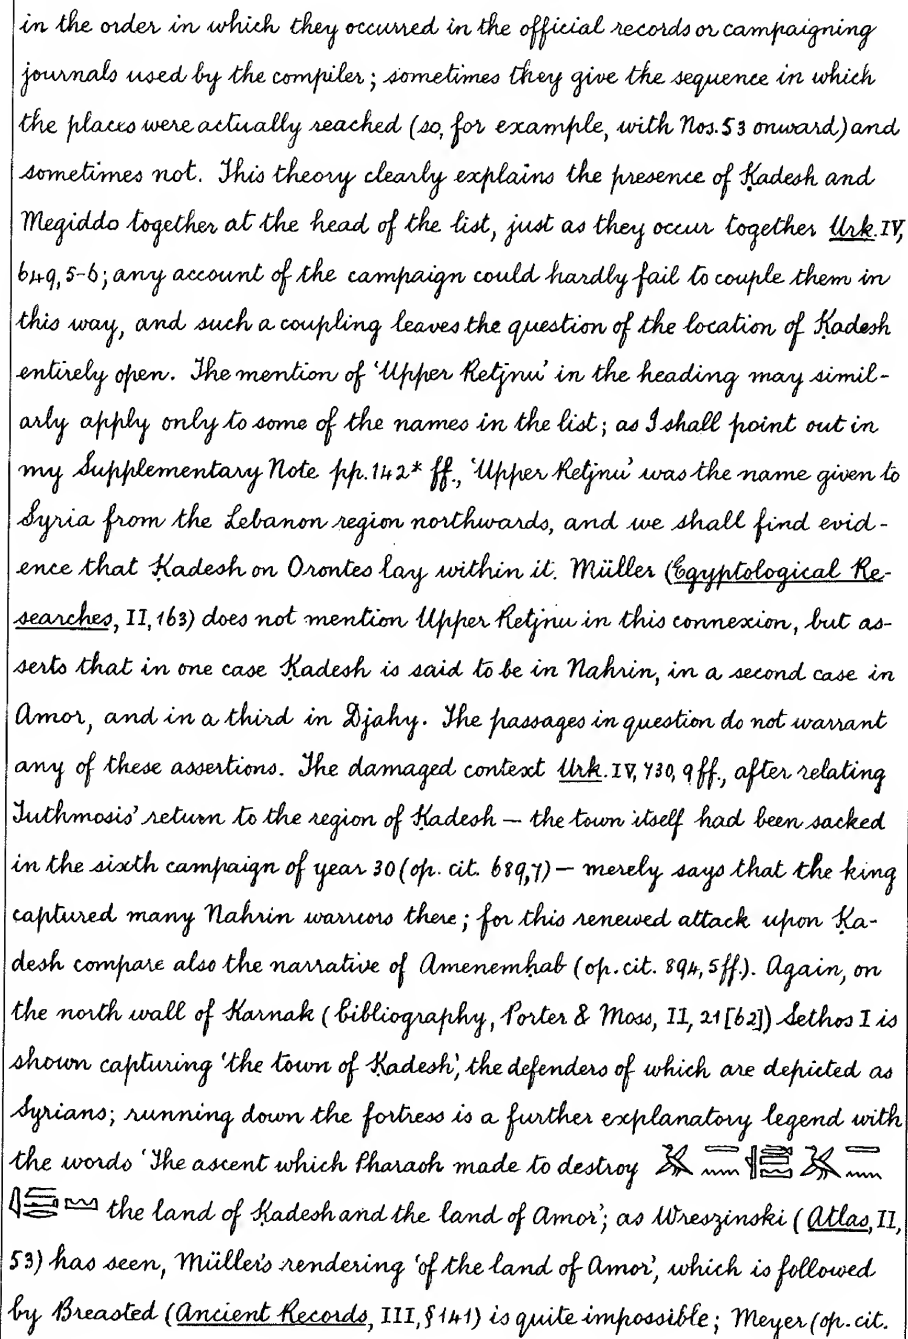 in the order in which they occurred in the official records or campaigning
journals used by the compiler; sometimes they give the sequence in which
the places were actually reached (so, for example, with Nos. 53 onward) and
sometimes not. This theory clearly explains the presence of Ḳadesh and
Megiddo together at the head of the list, just as they occur together Urk. IV,
649, 5-6; any account of the campaign could hardly fail to couple them in
this way, and such a coupling leaves the question of the location of Ḳadesh
entirely open. The mention of 'Upper Retjnu' in the heading may simil-
arly apply only to some of the names in the list; as I shall point out in
my Supplementary Note pp. 142* ff., 'Upper Retjnu' was the name given to
Syria from the Lebanon region northwards, and we shall find evid-
ence that Ḳadesh on Orontes lay within it. Müller (Egyptological Re-
searches, II, 163) does not mention Upper Retjnu in this connexion, but as-
serts that in one case Ḳadesh is said to be in Nahrin, in a second case in
Amor, and in a third in Djahy. The passages in question do not warrant
any of these assertions. The damaged context Urk. IV, 730, 9 ff., after relating
Tuthmosis' return to the region of Ḳadesh — the town itself had been sacked
in the sixth campaign of year 30 (op. cit. 689, 7) — merely says that the king
captured many Nahrin warriors there; for this renewed attack upon Ḳa-
desh compare also the narrative of Amenemḥab (op. cit. 894, 5 ff.). Again, on
the north wall of Karnak (bibliography, Porter & Moss, II, 21 [62]) Sethos I is
shown capturing 'the town of Ḳadesh', the defenders of which are depicted as
Syrians; running down the fortress is a further explanatory legend with
the words 'The ascent which Pharaoh made to destroy
the land of Ḳadesh and the land of Amor'; as Wreszinski (Atlas, II,
53) has seen, Müller's rendering 'of the land of Amor', which is followed
by Breasted (Ancient Records, III, § 141) is quite impossible; Meyer (op. cit.